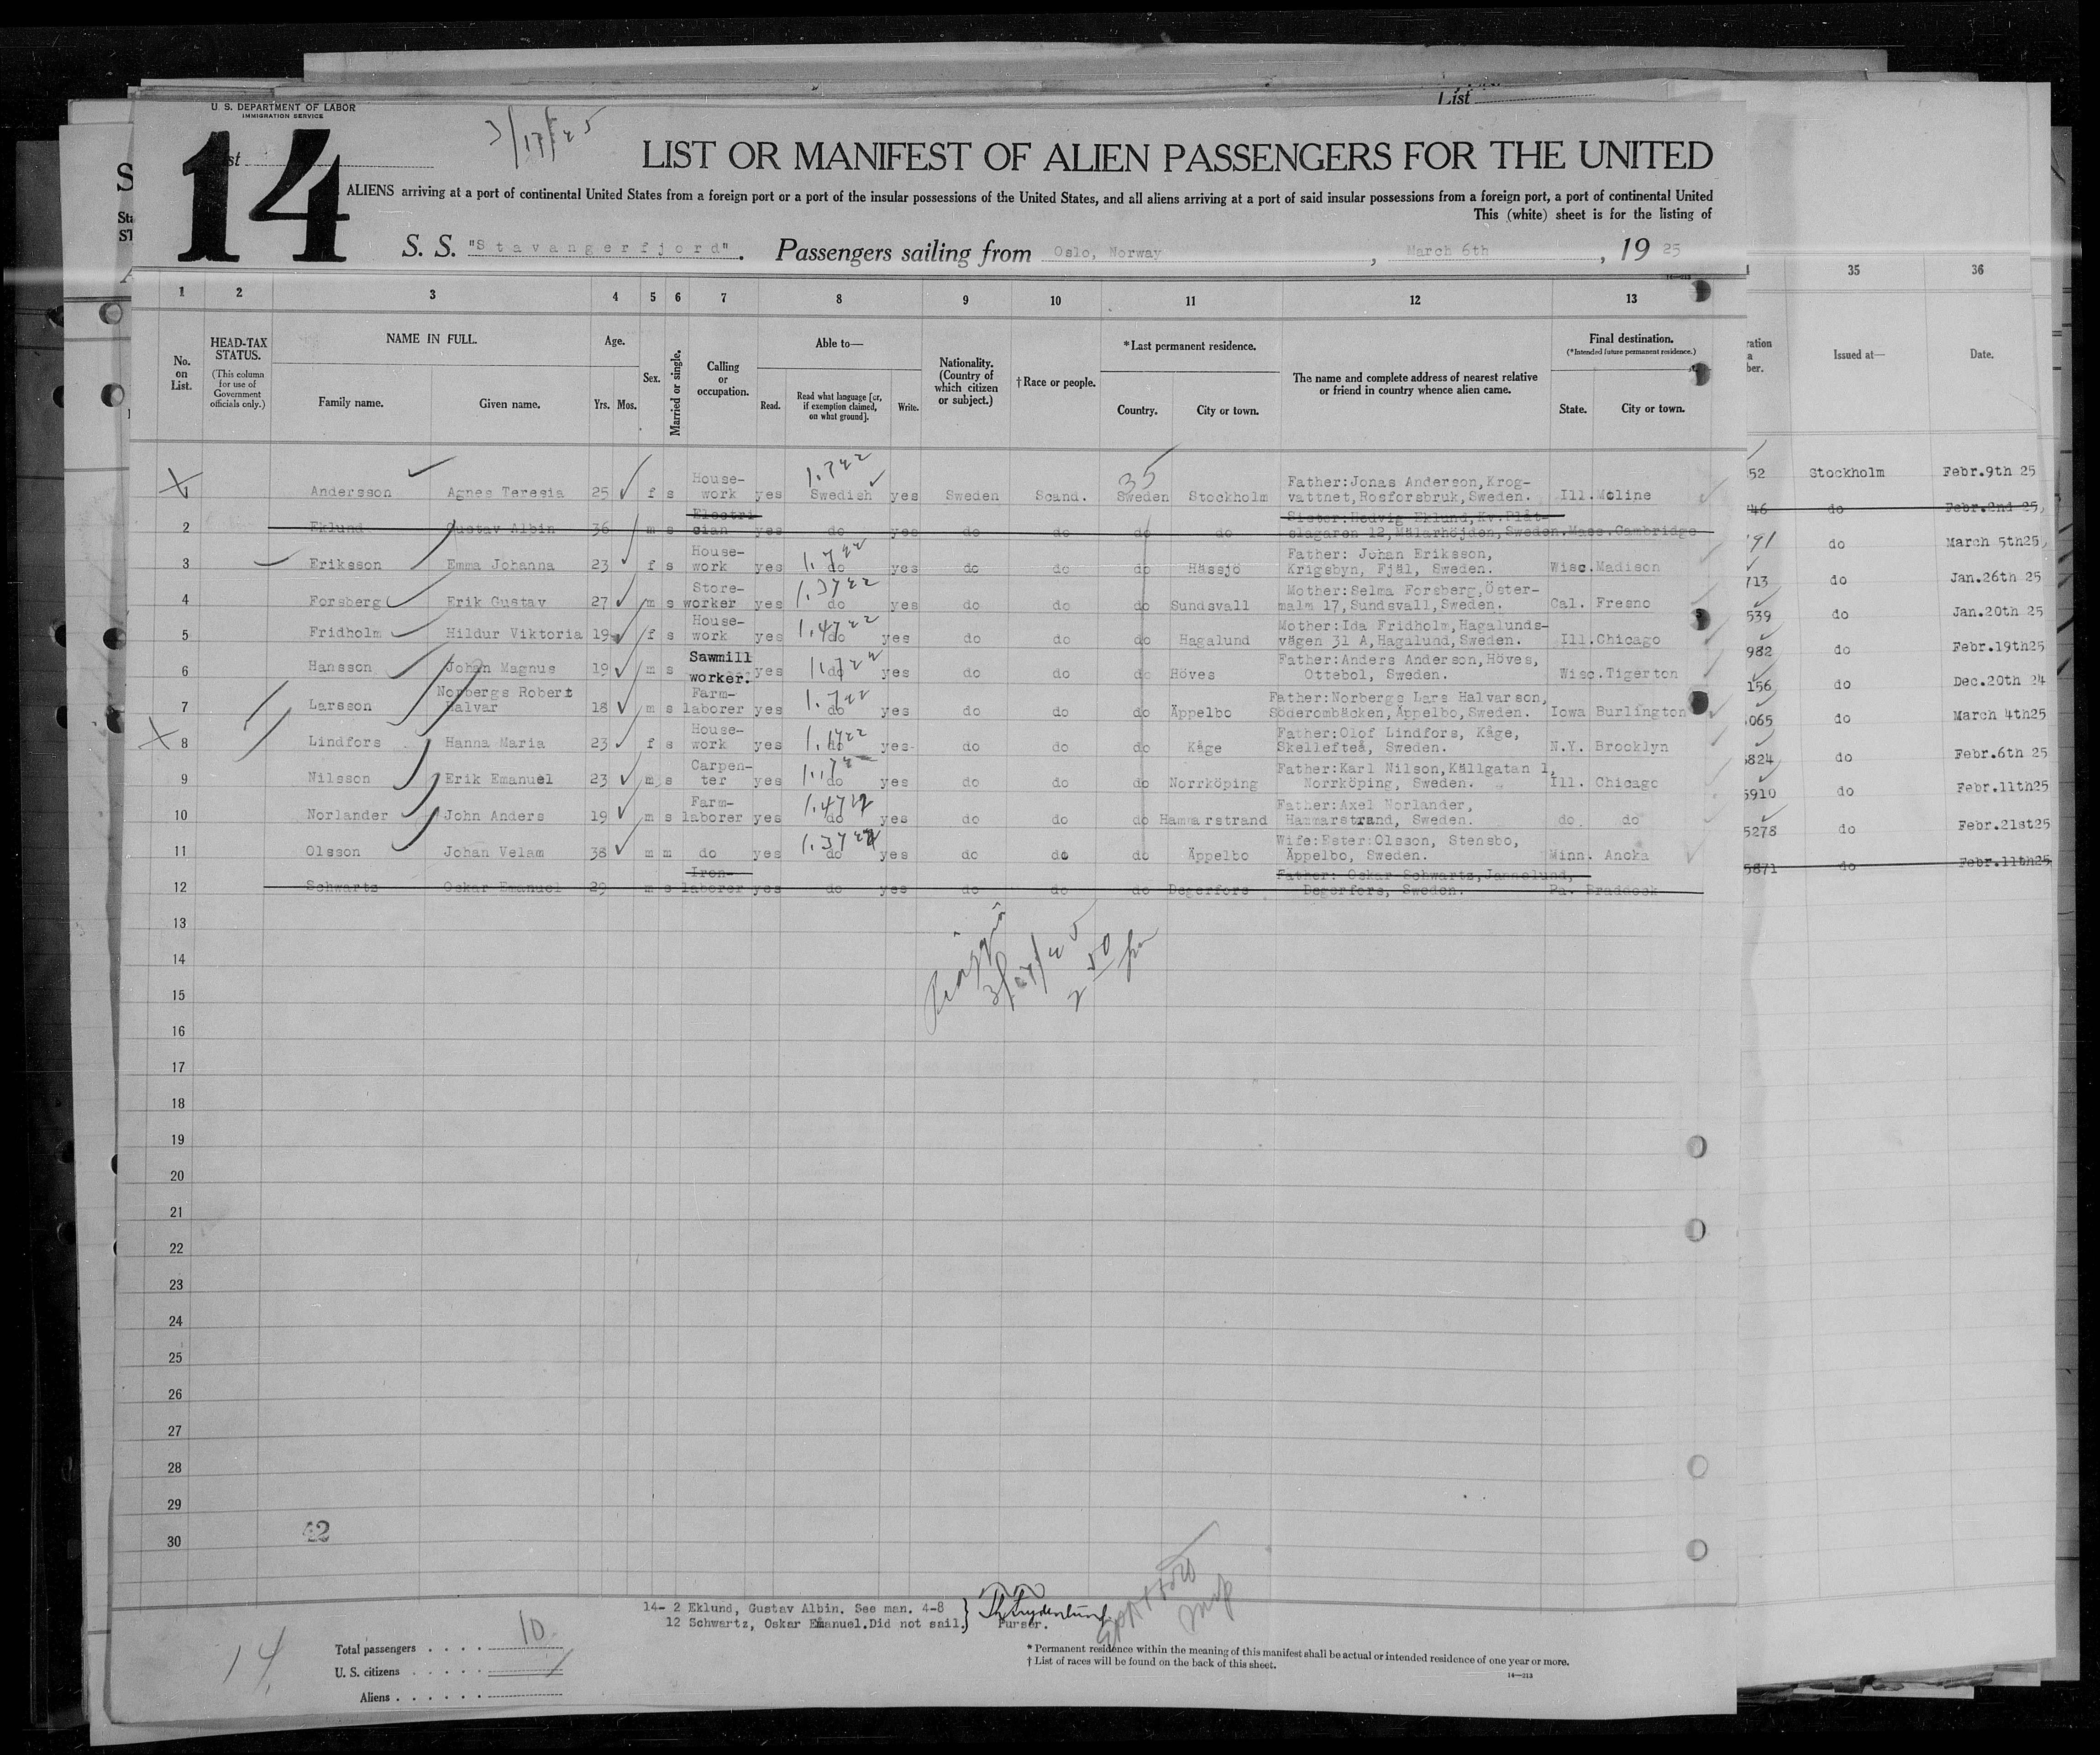 List
U. S. DEPARTMENT OF LABOR
IMMIGRATION SERVICE
14
3/17/25
LIST OR MANIFEST OF ALIEN PASSENGERS FOR THE UNITED
ALIENS arriving at a port of continental United States from a foreign port or a port of the insular possessions of the United States, and all aliens arriving at a port of said insular possessions from a foreign port, a port of continental United
This (white) sheet is for the listing of
S. S. "Stavangerfjord". Passengers sailing from Oslo, Norway, March 6th, 1925
1 2 3 4 5 6 7 8 9 10 11 12 13 35 36
No. on List.
HEAD-TAX STATUS. (This column for use of Government officials only.)
NAME IN FULL.
Family name. Given name.
Age.
Yrs. Mos.
Sex.
Married or single.
Calling or occupation.
Able to—
Read. Read what language [or, if exemption claimed, on what ground]. Write.
Nationality. (Country of which citizen or subject.)
† Race or people.
*Last permanent residence.
Country. City or town.
The name and complete address of nearest relative or friend in country whence alien came.
Final destination.
(*Intended future permanent residence.)
State. City or town.
Issued at— Date.
Andersson Agnes Teresia 25 f s House-work yes Swedish yes Sweden Scand. Sweden Stockholm Father:Jonas Anderson,Krog-vattnet,Rosforsbruk,Sweden. Ill. Moline 52 Stockholm Febr.9th 25
2 Eklund Gustav Albin 36 m s Electrician yes do yes do do do do Sister:Hedvig Eklund,Kv.Plåt-slagaren 12,Mälarhöjden,Sweden. Mass. Cambridge 46 do Febr.2nd 25
3 Eriksson Emma Johanna 23 f s House-work yes do yes do do do Hässjö Father: Johan Eriksson, Krigsbyn, Fjäl, Sweden. Wisc. Madison 91 do March 5th25
4 Forsberg Erik Gustav 27 m s Store-worker yes do yes do do do Sundsvall Mother:Selma Forsberg,Öster-malm 17,Sundsvall,Sweden. Cal. Fresno 713 do Jan.26th 25
5 Fridholm Hildur Viktoria 19 f s House-work yes do yes do do do Hagalund Mother:Ida Fridholm,Hagalunds-vägen 31 A,Hagalund,Sweden. Ill. Chicago 539 do Jan.20th 25
6 Hansson Johan Magnus 19 m s Sawmill worker. yes do yes do do do Höves Father:Anders Anderson,Höves, Ottebol, Sweden. Wisc. Tigerton 982 do Febr.19th25
7 Larsson Norbergs Robert Halvar 18 m s Farm-laborer yes do yes do do do Äppelbo Father:Norbergs Lars Halvarson, Söderombäcken,Äppelbo,Sweden. Iowa Burlington 156 do Dec.20th 24
8 Lindfors Hanna Maria 23 f s House-work yes do yes do do do Kåge Father:Olof Lindfors, Kåge, Skellefteå, Sweden. N.Y. Brooklyn 065 do March 4th25
9 Nilsson Erik Emanuel 23 m s Carpen-ter yes do yes do do do Norrköping Father:Karl Nilson,Källgatan 1, Norrköping, Sweden. Ill. Chicago 824 do Febr.6th 25
10 Norlander John Anders 19 m s Farm-laborer yes do yes do do do Hammarstrand Father:Axel Norlander, Hammarstrand, Sweden. do do 5910 do Febr.11th25
11 Olsson Johan Velam 38 m m do yes do yes do do do Äppelbo Wife:Ester:Olsson, Stensbo, Äppelbo, Sweden. Minn. Anoka 5278 do Febr.21st25
12 Schwartz Oskar Emanuel 29 m s Iron-laborer yes do yes do do do Degerfors Father: Oskar Schwartz,Jannelund, Degerfors, Sweden. Pa. Braddock 5871 do Febr.11th25
13
14
15
16
17
18
19
20
21
22
23
24
25
26
27
28
29
30
42
14- 2 Eklund, Gustav Albin. See man. 4-8
12 Schwartz, Oskar Emanuel.Did not sail.
Purser.
14
Total passengers 10
U. S. citizens
Aliens
* Permanent residence within the meaning of this manifest shall be actual or intended residence of one year or more.
† List of races will be found on the back of this sheet.
14—213